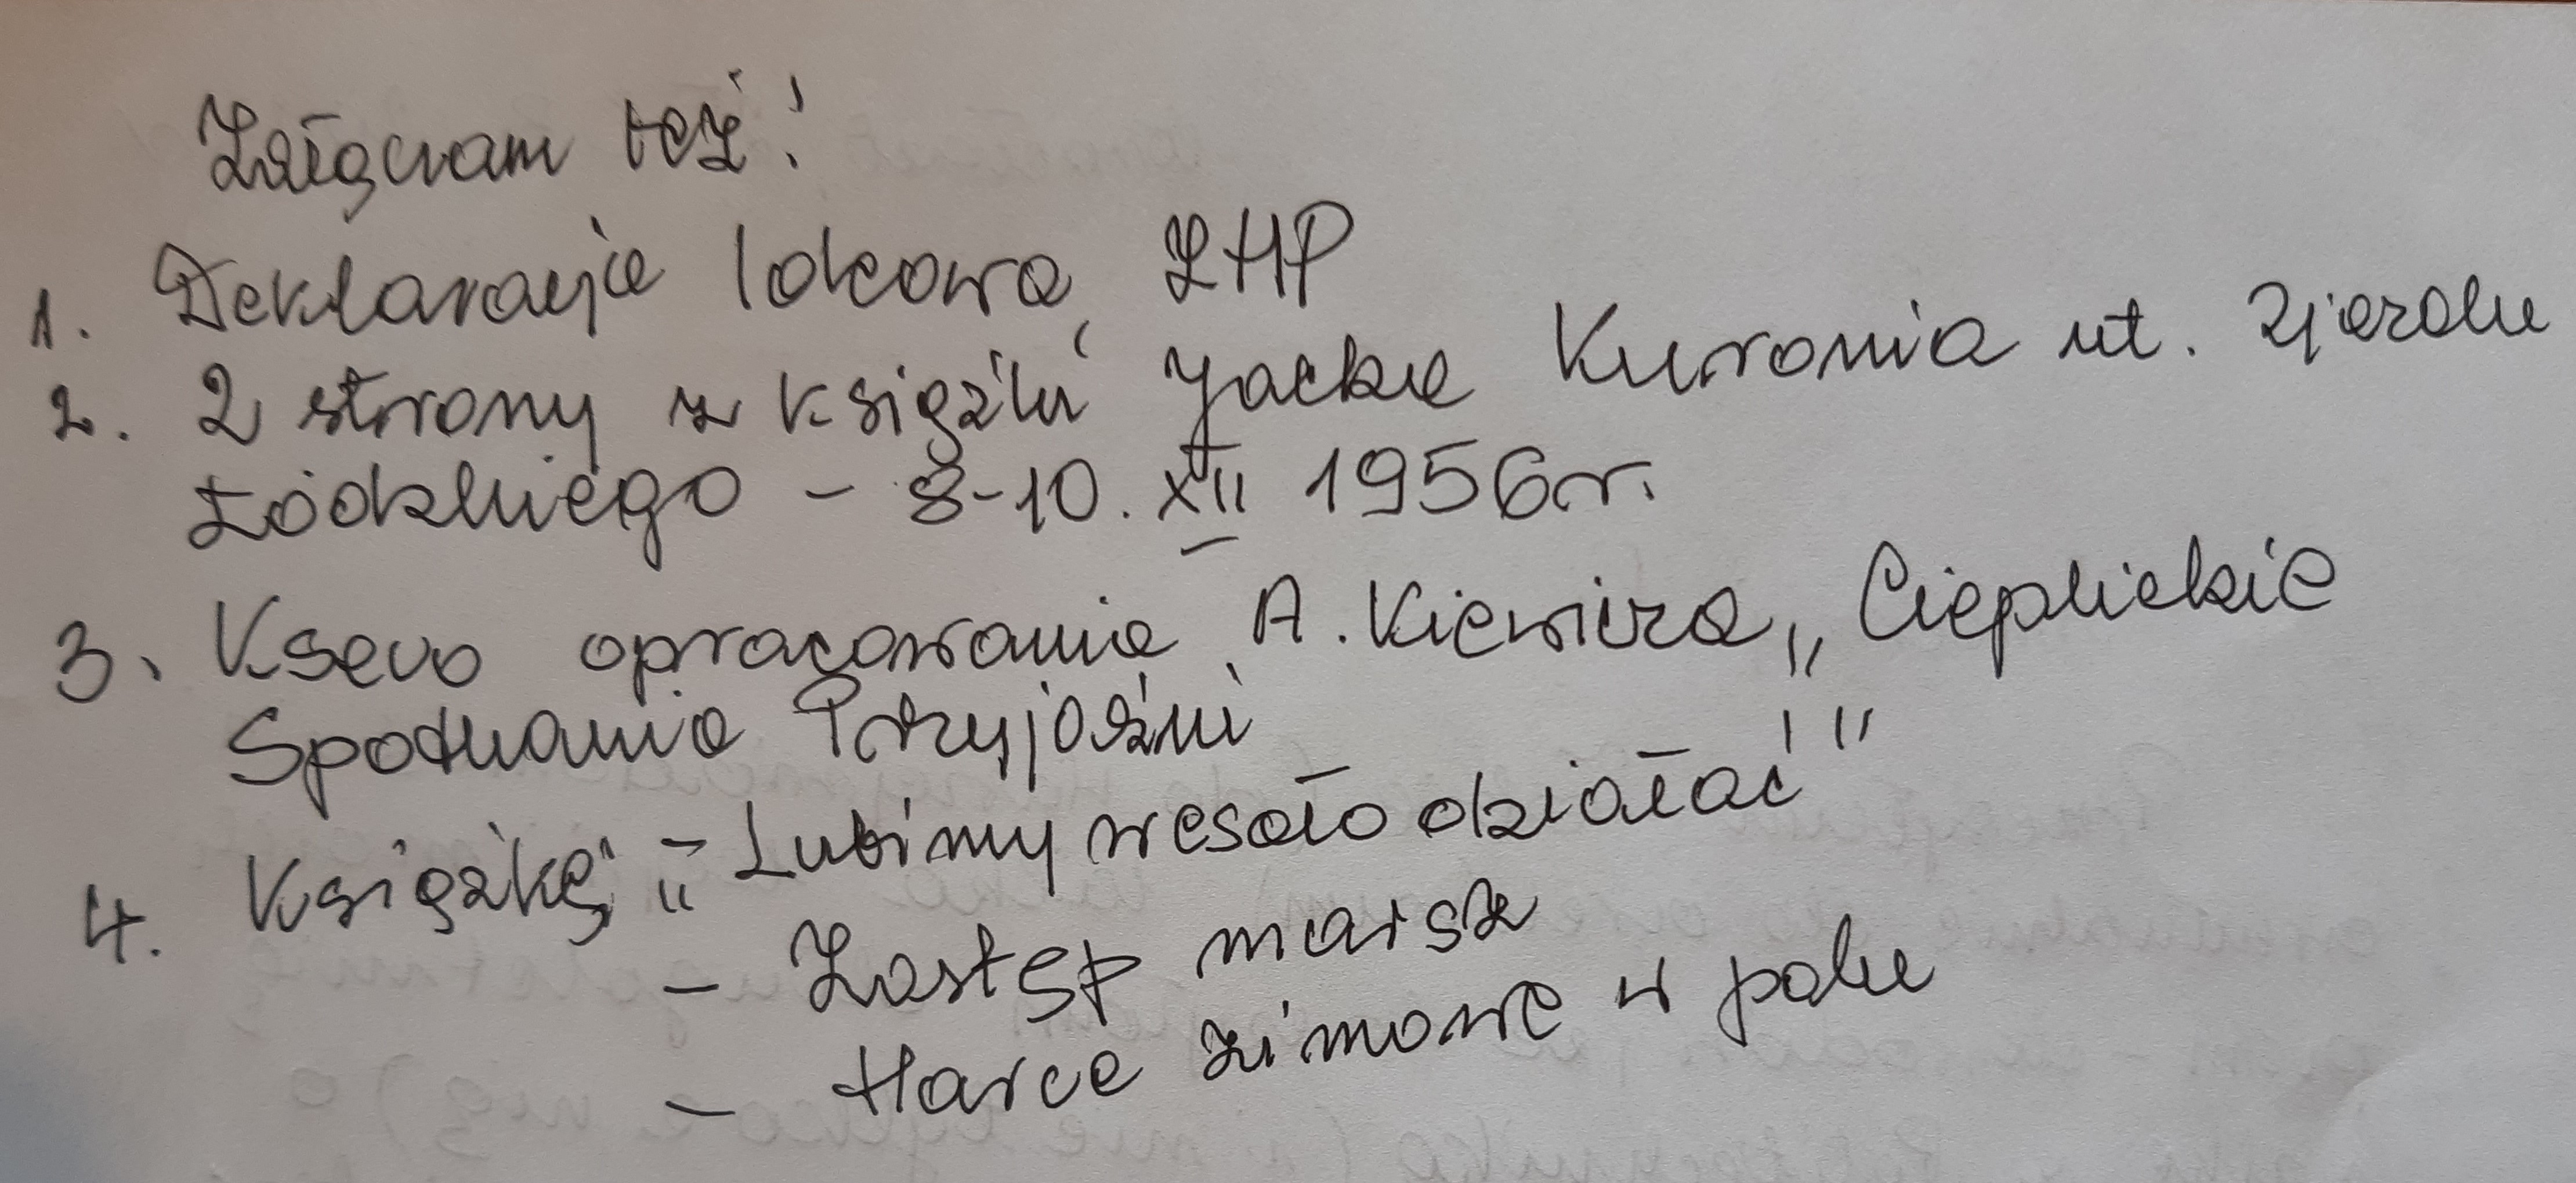 Załączam też!
1. Deklarację Ideową ZHP
2. 2 strony z książki Jacka Kuronia nt. Zjazdu
Łódzkiego - 8-10. XII 1956r.
3. Ksero opracowania A. Kiewicza „Cieplickie
Spotkania Przyjaźni
4. Książkę „Lubimy wesoło działać"
- Zastęp marsz
- Harce zimowe w polu